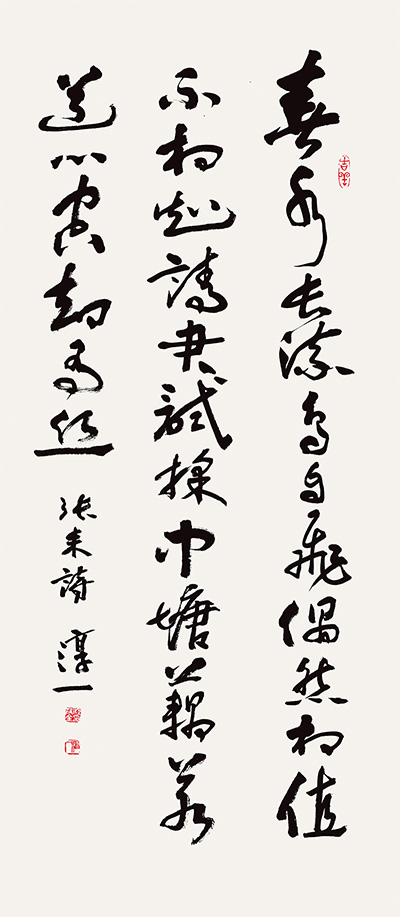 春水長流鳥自飛偶然相值
不相知請君試採中塘藕若
道心空却有丝
張耒詩 淳一